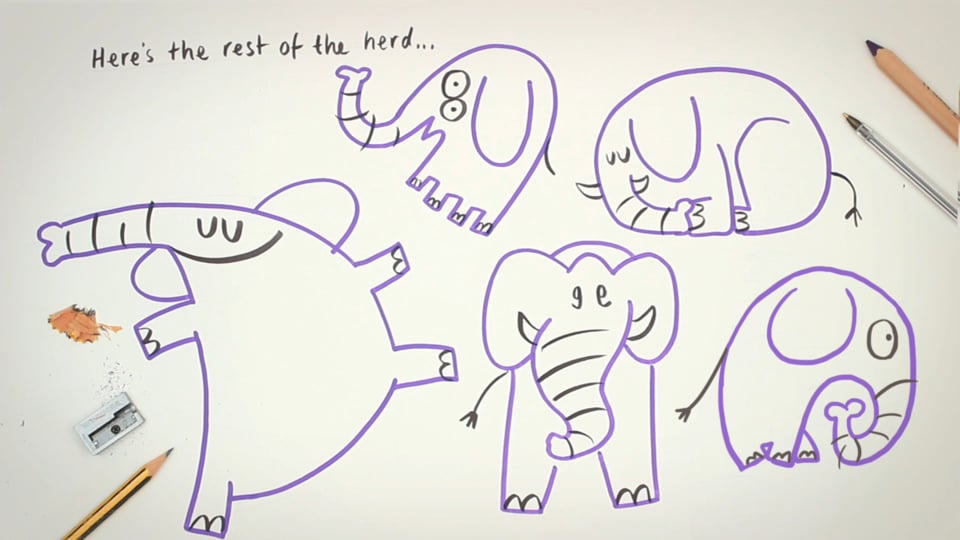 Here's the rest of the herd...